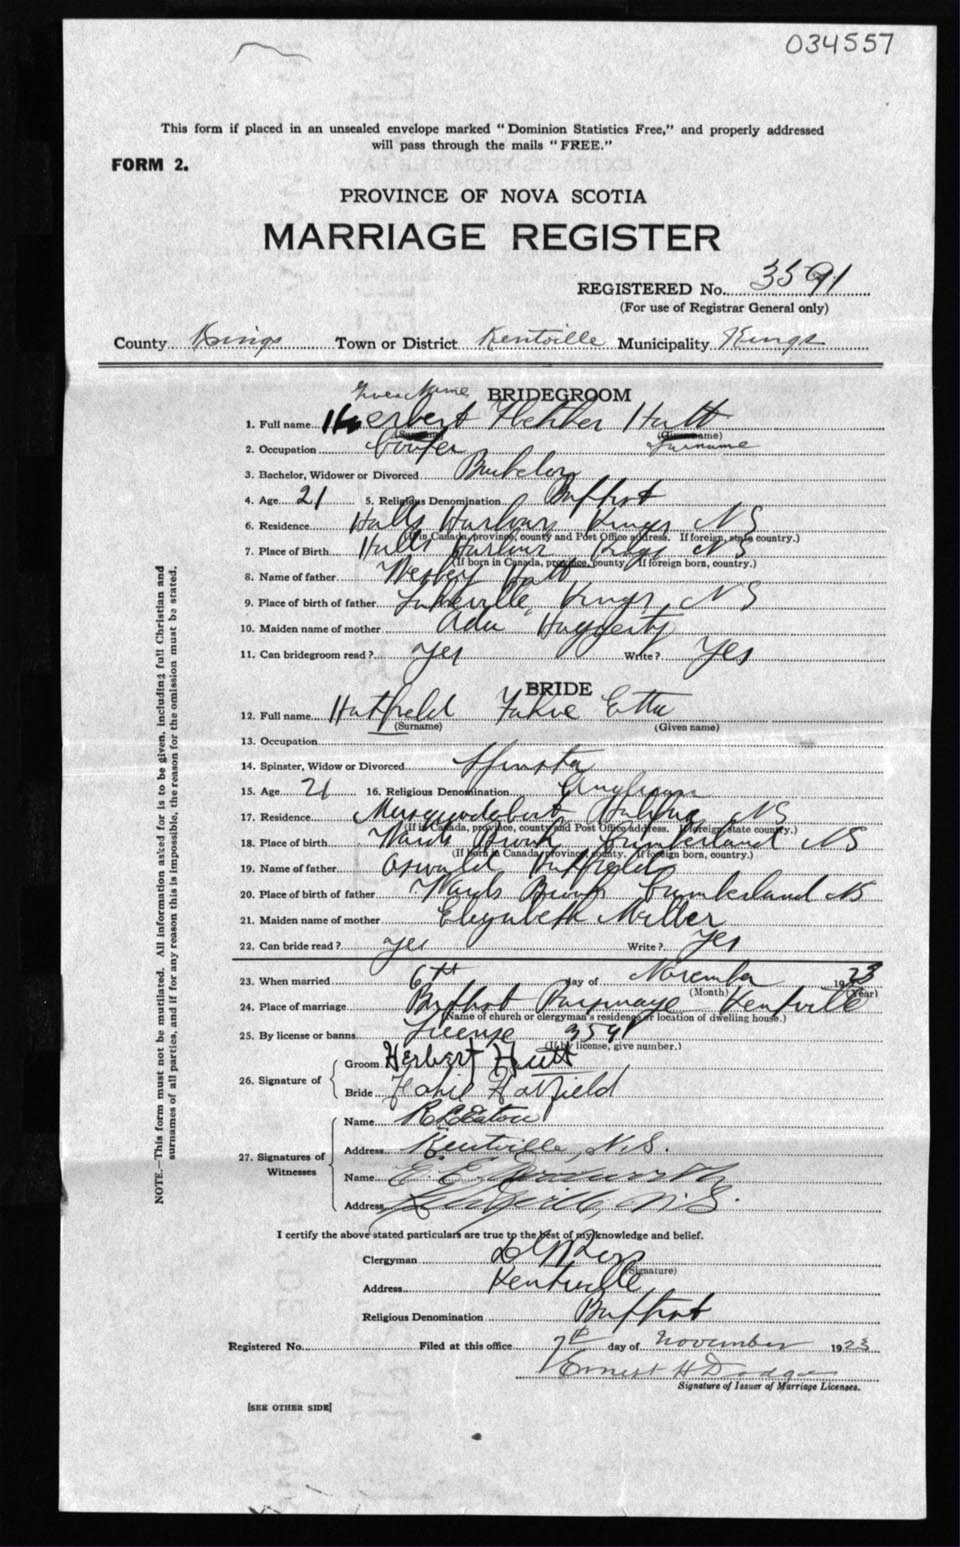 034557
This form if placed in an unsealed envelope marked "Dominion Statistics Free," and properly addressed
will pass through the mails "FREE."
FORM 2.
PROVINCE OF NOVA SCOTIA
MARRIAGE REGISTER
REGISTERED No. 3591
(For use of Registrar General only)
County Kings Town or District Kentville Municipality Kings
Given Name
BRIDEGROOM
1. Full name Herbert Fletcher Hutt
(Surname) (Given name)
Surname
2. Occupation Cooper
3. Bachelor, Widower or Divorced Bachelor
4. Age 21 5. Religious Denomination Baptist
6. Residence Halls Harbour Kings NS
(If in Canada, province, county and Post Office address. If foreign, state country.)
7. Place of Birth Halls Harbour Kings NS
(If born in Canada, province, county. If foreign born, country.)
8. Name of father Wesley Hutt
9. Place of birth of father Lakeville, Kings, NS
10. Maiden name of mother Ada Haggerty
11. Can bridegroom read? Yes Write? Yes
BRIDE
12. Full name Hatfield Etta
(Surname) (Given name)
13. Occupation
14. Spinster, Widow or Divorced Spinster
15. Age 21 16. Religious Denomination Anglican
17. Residence Musquodoboit Halifax NS
(If in Canada, province, county and Post Office address. If foreign, state country.)
18. Place of birth Wards Brook Cumberland NS
(If born in Canada, province, county. If foreign born, country.)
19. Name of father Oswald Hatfield
20. Place of birth of father Wards Brook Cumberland NS
21. Maiden name of mother Elizabeth Miller
22. Can bride read? Yes Write? Yes
23. When married 6th day of November 1923
(Month) (Year)
24. Place of marriage Baptist Parsonage Kentville
(Name of church or clergyman's residence or location of dwelling house.)
25. By license or banns License 3591
(If by license, give number.)
26. Signature of Groom Herbert Hutt
Bride Hatfield
27. Signatures of Witnesses Name R L Eaton
Address Kentville, N.S.
Name E. E.
Address Kentville, N.S.
I certify the above stated particulars are true to the best of my knowledge and belief.
Clergyman
(Signature)
Address Kentville
Religious Denomination Baptist
Registered No. Filed at this office 7th day of November 1923
Ernest H Dodge
Signature of Issuer of Marriage Licenses.
[SEE OTHER SIDE]
NOTE.—This form must not be mutilated. All information asked for is to be given, including full Christian and
surnames of all parties, and if for any reason this is impossible, the reason for the omission must be stated.